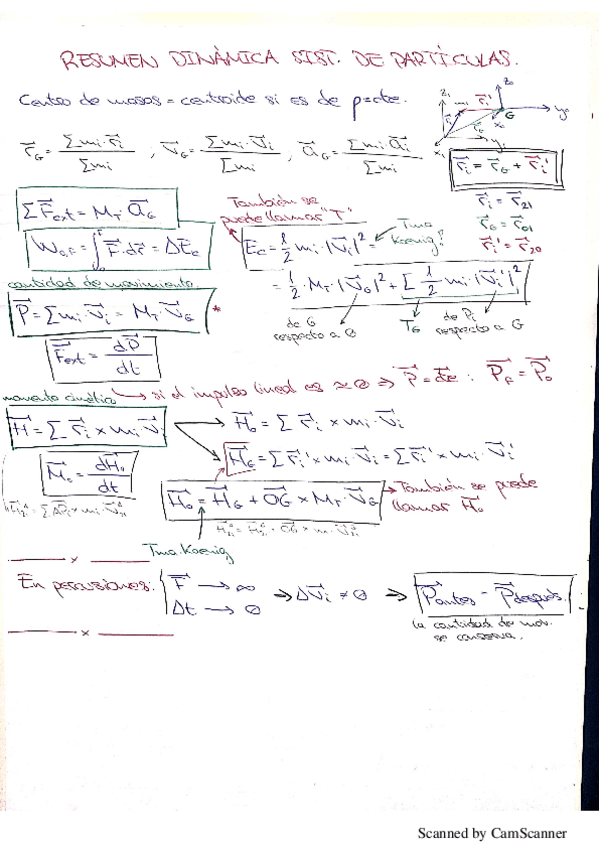 RESUMEN DINÁMICA SIST. DE PARTÍCULAS.
Centro de masas = centroide si es de ρ=cte.
r⃗_G = Σm_i·r⃗_i / Σm_i ; v⃗_G = Σm_i·v⃗_i / Σm_i ; a⃗_G = Σm_i·a⃗_i / Σm_i
r⃗_i = r⃗_G + r⃗_i'
r⃗_i = r⃗_21
r⃗_G = r⃗_01
r⃗_i' = r⃗_20
ΣF⃗_ext = M_T·a⃗_G
También se puede llamar "T"
Tma Koenig?
E_c = 1/2 m_i·|v⃗_i|² =
= 1/2·M_T·|v⃗_G|² + Σ 1/2 m_i·|v⃗_i'|²
de G respecto a O
T_G
de P_i respecto a G
cantidad de movimiento
P⃗ = Σm_i·v⃗_i = M_T·v⃗_G *
F⃗_ext = dP⃗/dt
si el impulso lineal es ≈ 0 ⇒ P⃗ = cte : P⃗_F = P⃗_0
momento cinético
H⃗ = Σ r⃗_i × m_i·v⃗_i
H⃗_0 = Σ r⃗_i × m_i·v⃗_i
H⃗_G = Σ r⃗_i' × m_i·v⃗_i = Σ r⃗_i' × m_i·v⃗_i'
M⃗_0 = dH⃗_0/dt
H⃗_0 = H⃗_G + OG × M_T·v⃗_G
También se puede llamar H⃗_0
Tma. Koenig
En percusiones:
F⃗ → ∞
Δt → 0
⇒ Δv⃗_i ≠ 0 ⇒ P⃗antes = P⃗después.
la cantidad de mov. se conserva.
Scanned by CamScanner